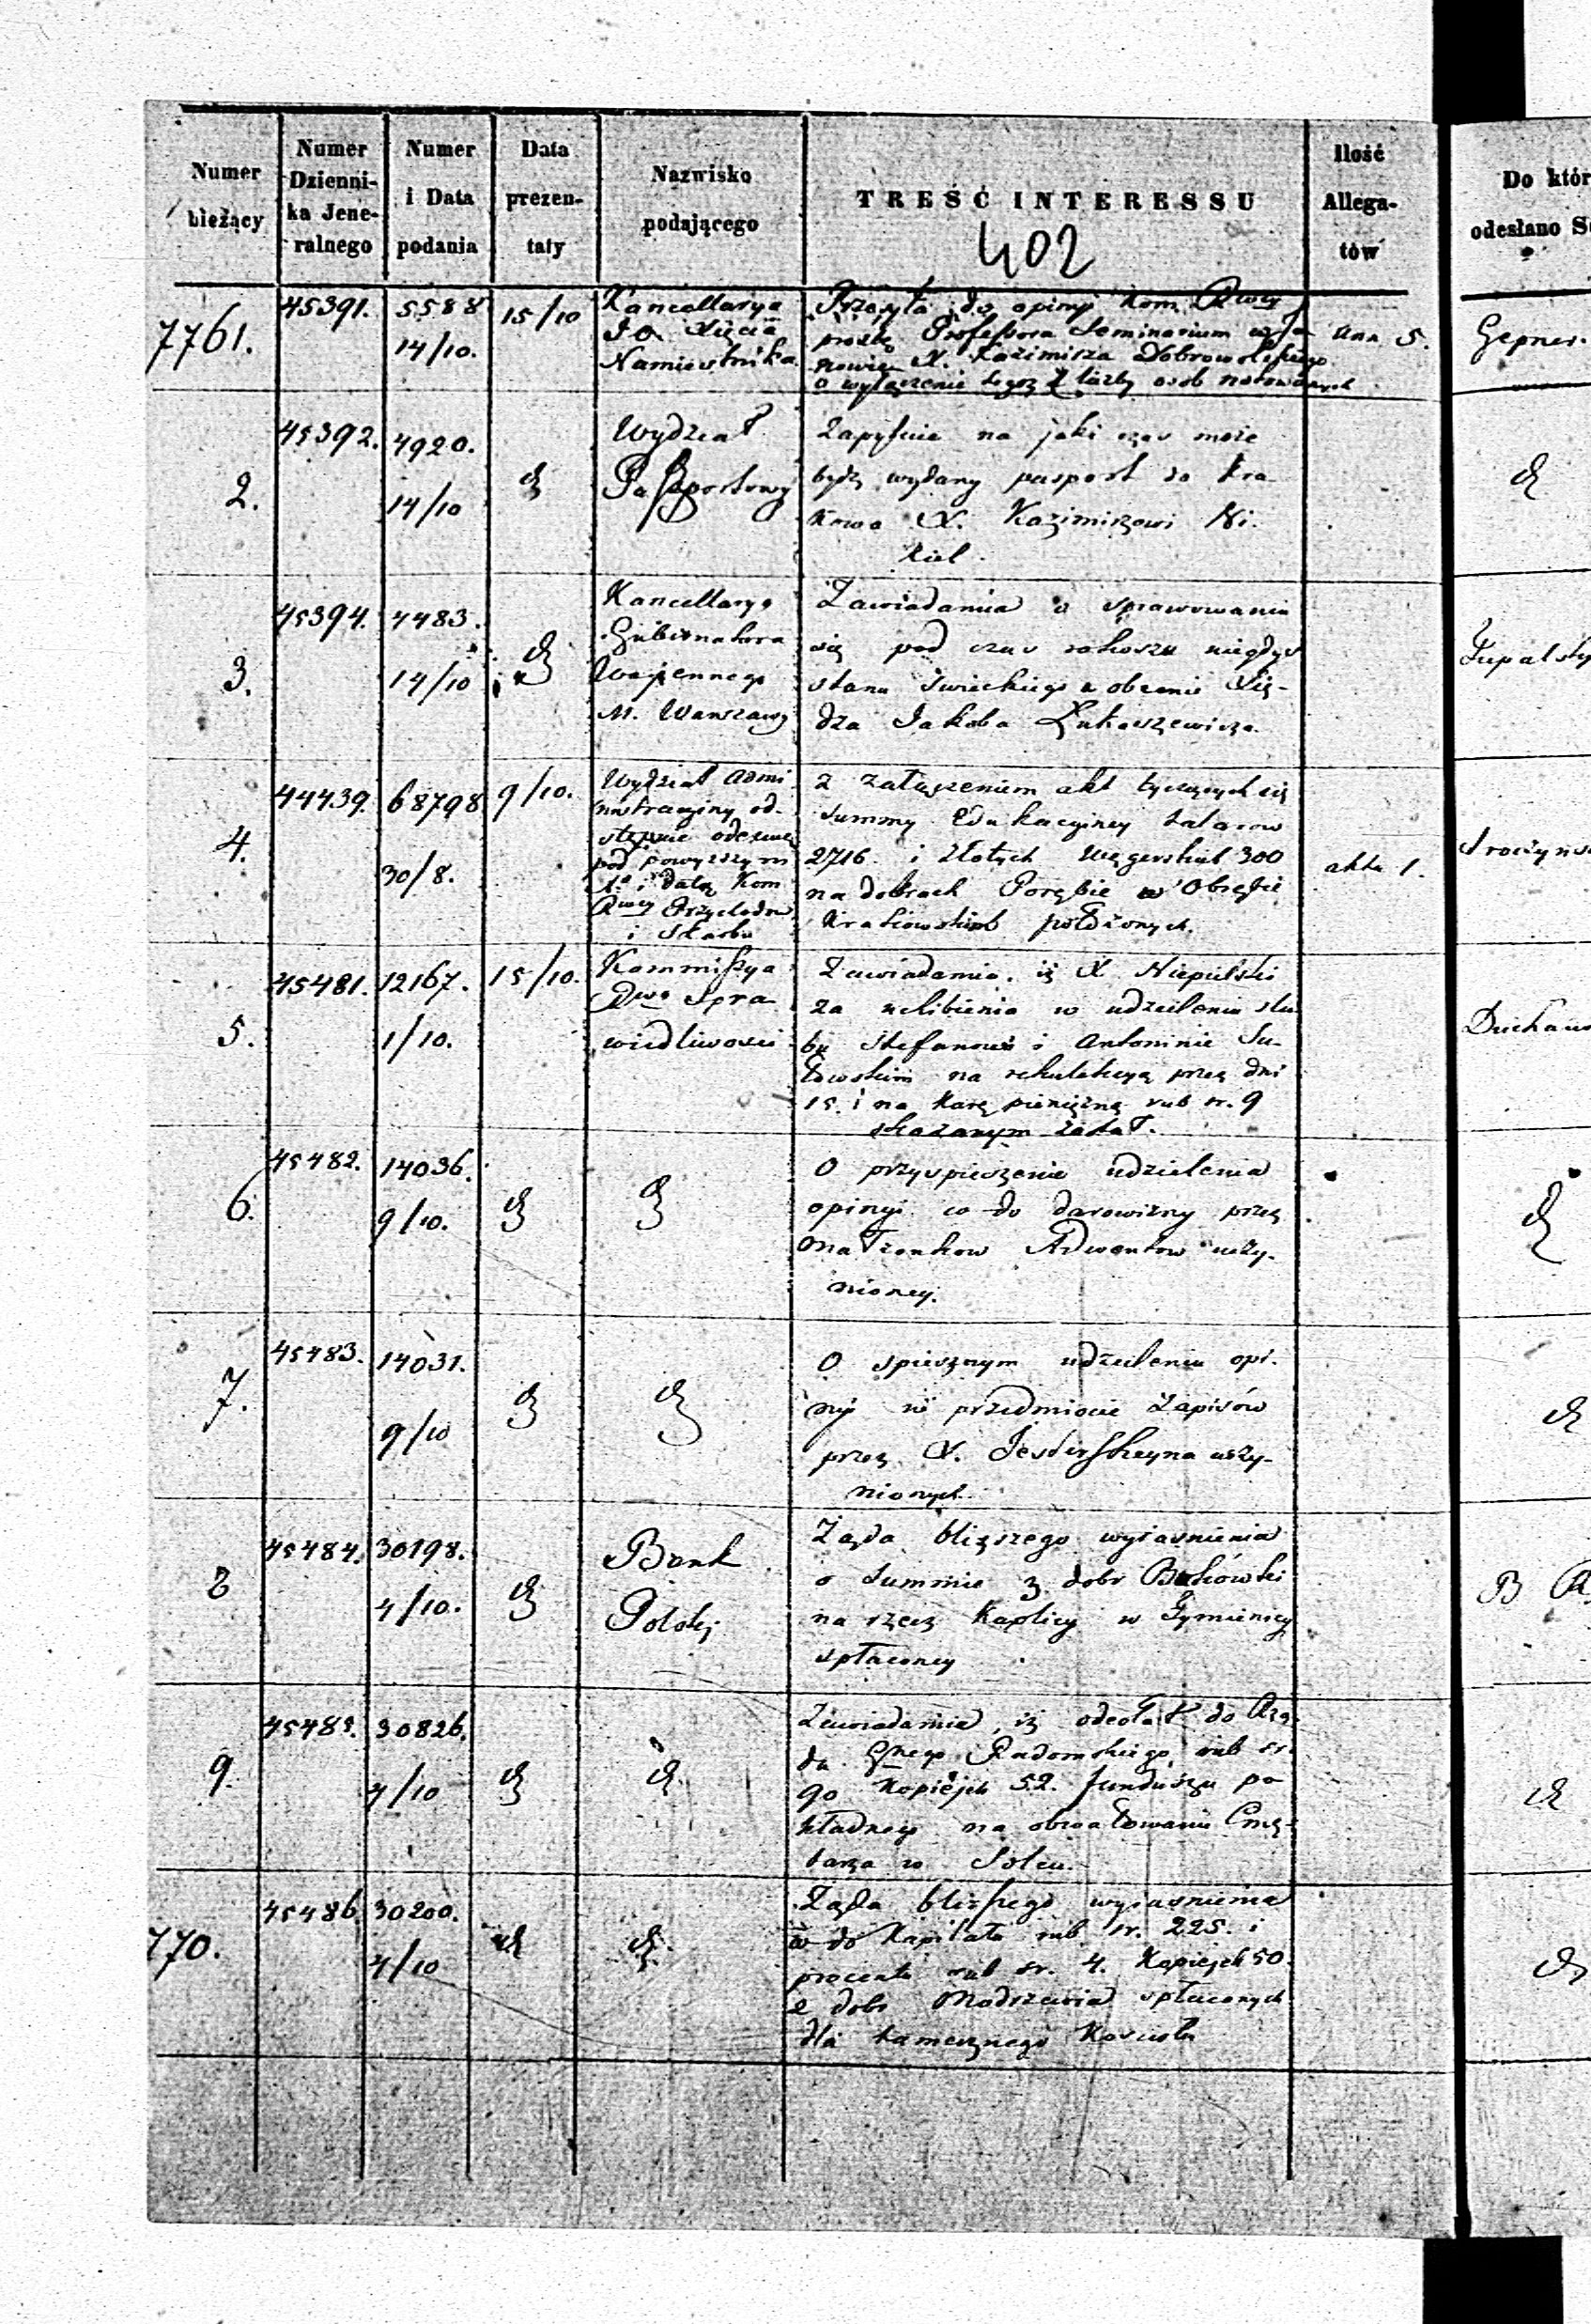 Numer bieżący
Numer Dziennika Jeneralnego
Numer i Data podania
Data prezentaty
Nazwisko podającego
TREŚĆ INTERESSU
402
Ilość Allegatów
Do któr
odesłano S
7761. 45391. 5588 14/10. 15/10
Kancellarya
J.O. Xięcia
Namiestnika
Przesyła do opinyi Kom. Rwey
prozbę Professora Seminarium
X. Kazimierza Dobrowolskiego
o wyłączenie tegoż z liczby osób notowanych
ann. 5.
Gepner.
2. 45392. 4920. 14/10
Wydział
Paszportowy
Zapytuie na jaki czas może
bydź wydany pasport do Kra
kowa X. Kazimirzowi Ni.
kiel.
3. 45394. 4483. 14/10
Kancellarya
Gubernatora
Wojennego
M. Warszawy
Zawiadamia o sprawowaniu
się pod czas rokoszu niegdyś
stanu świeckiego a obecnie Xię-
dza Jakoba Łukaszewicza.
4. 44439. 68798 30/8. 9/10.
Wydział Admi
nistracyiny od-
stępuie odezwę
pod powyższym
No i datą Kom
Rwey Przychodów
i Skarbu
Z załączeniem akt tyczących się
Summy Edukacyiney talarow
2716. i złotych Węgierskich 300
na dobrach Porębie w Obrębie
Krakowskich położonych.
akta 1.
5. 45481. 12167. 1/10. 15/10.
Kommissya
Rwa Spra
wiedliwości
Zawiadamia, iż X. Niepulski
za uchibienia w udzieleniu ślu
bu Stefanowi i Antoninie Su-
łowskim na rekolekcyą przez dni
15. i na karę pienięzną rub sr. 9
skazanym został.
6. 45482. 14036. 9/10.
O przyspieszenie udzielenia
opinyi co do darowizny przez
Małżonkow Adwentow uczy-
nioney.
7. 45483. 14031. 9/10
O spiesznym udzieleniu opi-
nyi w przedmiocie zapisów
przez X. uczy-
nionych.
8 45484. 30198. 4/10.
Bank
Polski
Żąda bliższego wyiasnienia
o summie z dobr
na rzecz Kaplicy w
spłaconey
B
9. 45485. 30826. 4/10
Zawiadamia, iż odesłał do Rzą-
du Gnego Radomskiego rub sr.
90 kopiejek 52. funduszu po
kładnego na obwałowanie Cmę-
tarza w Solcu.
770. 45486. 30200. 4/10
Żąda bliższego wyiasnienia
co do Kapitału rub. sr. 225. i
procentu rub sr. 4. Kopiejek 50.
z dobr Modrzewia spłaconych
dla tamecznego Kościoła